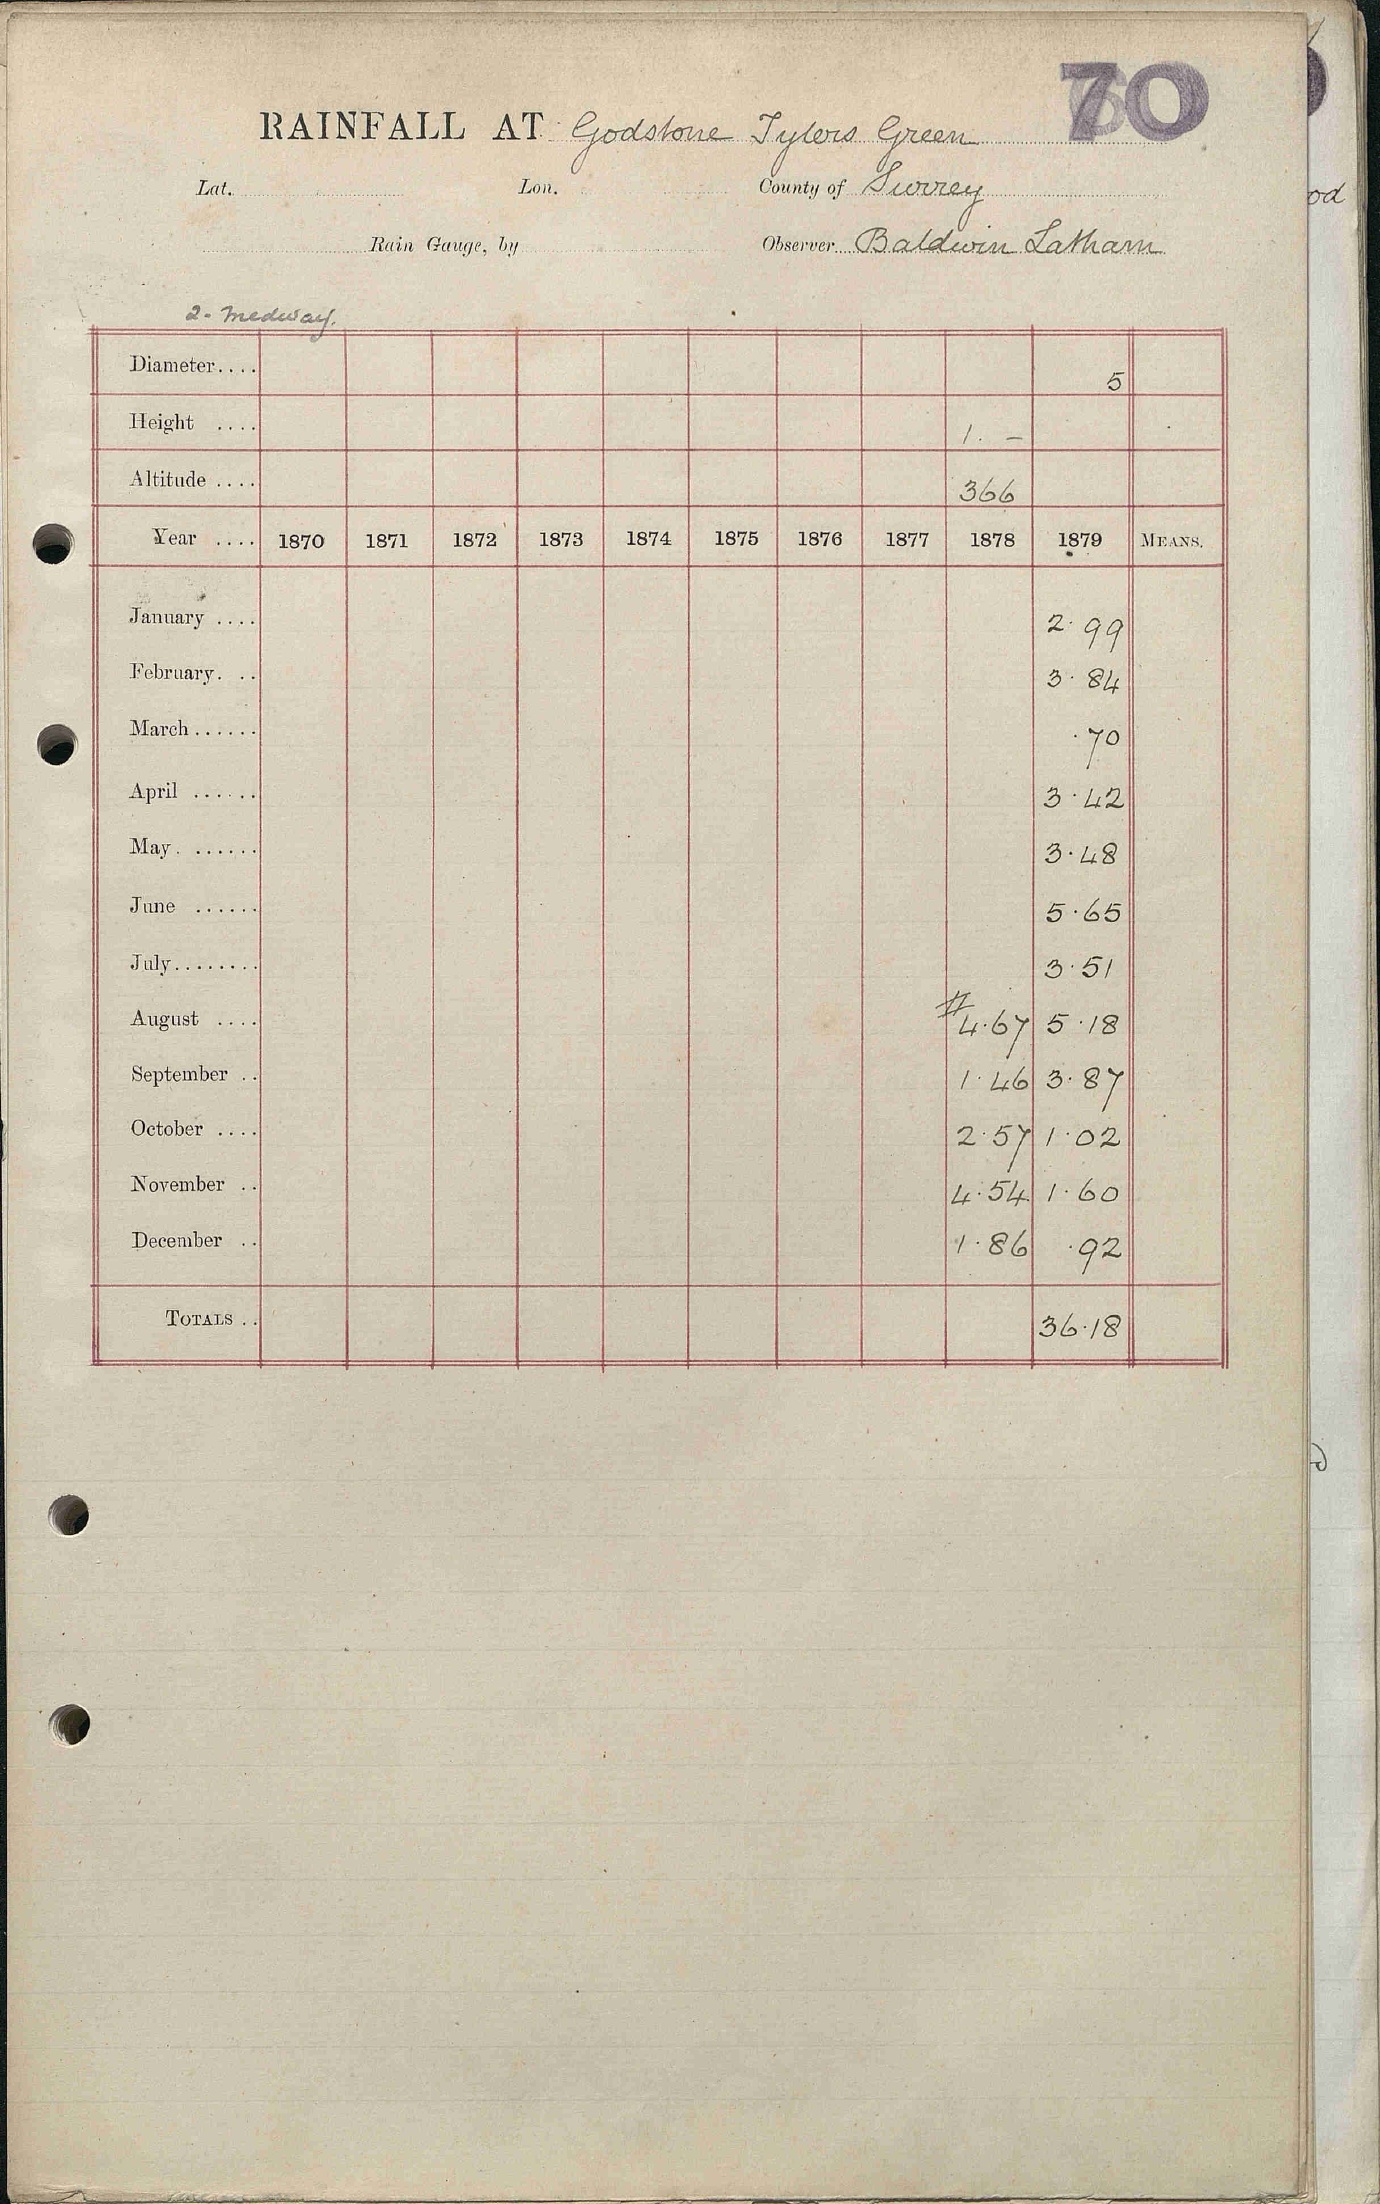 70
RAINFALL AT Godstone Tylers Green
Lat. Lon. County of Surrey
Rain Gauge, by Observer Baldwin Latham
2- Medway.
Diameter.... 5
Height .... 1. –
Altitude .... 366
Year .... 1870 1871 1872 1873 1874 1875 1876 1877 1878 1879 MEANS.
January .... 2.99
February. .. 3.84
March...... .70
April ...... 3.42
May. ...... 3.48
June ...... 5.65
July........ 3.51
August .... # 4.67 5.18
September .. 1.46 3.87
October .... 2.57 1.02
November .. 4.54 1.60
December .. 1.86 .92
TOTALS .. 36.18
od